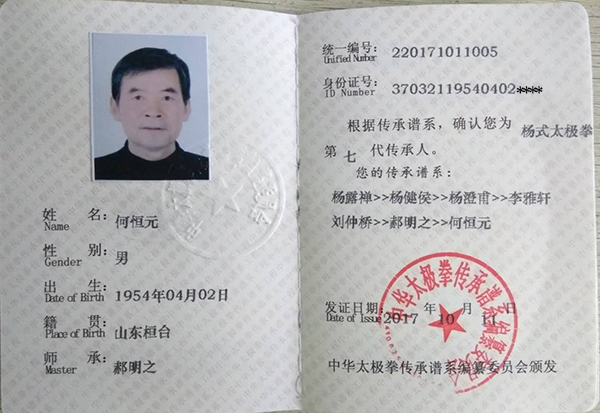 姓 名：何恒元
Name
性 别：男
Gender
出 生：1954年04月02日
Date of Birth
籍 贯：山东桓台
Place of Birth
师 承：郝明之
Master
统一编号：220171011005
Unified Number
身份证号：37032119540402****
ID Number
根据传承谱系，确认您为 杨式太极拳
第 七 代传承人。
您的传承谱系：
杨露禅>>杨健侯>>杨澄甫>>李雅轩
刘仲桥>>郝明之>>何恒元
发证日期：2017 年 10 月 11 日
Date of Issue
中华太极拳传承谱系编纂委员会
中华太极拳传承谱系编纂委员会颁发